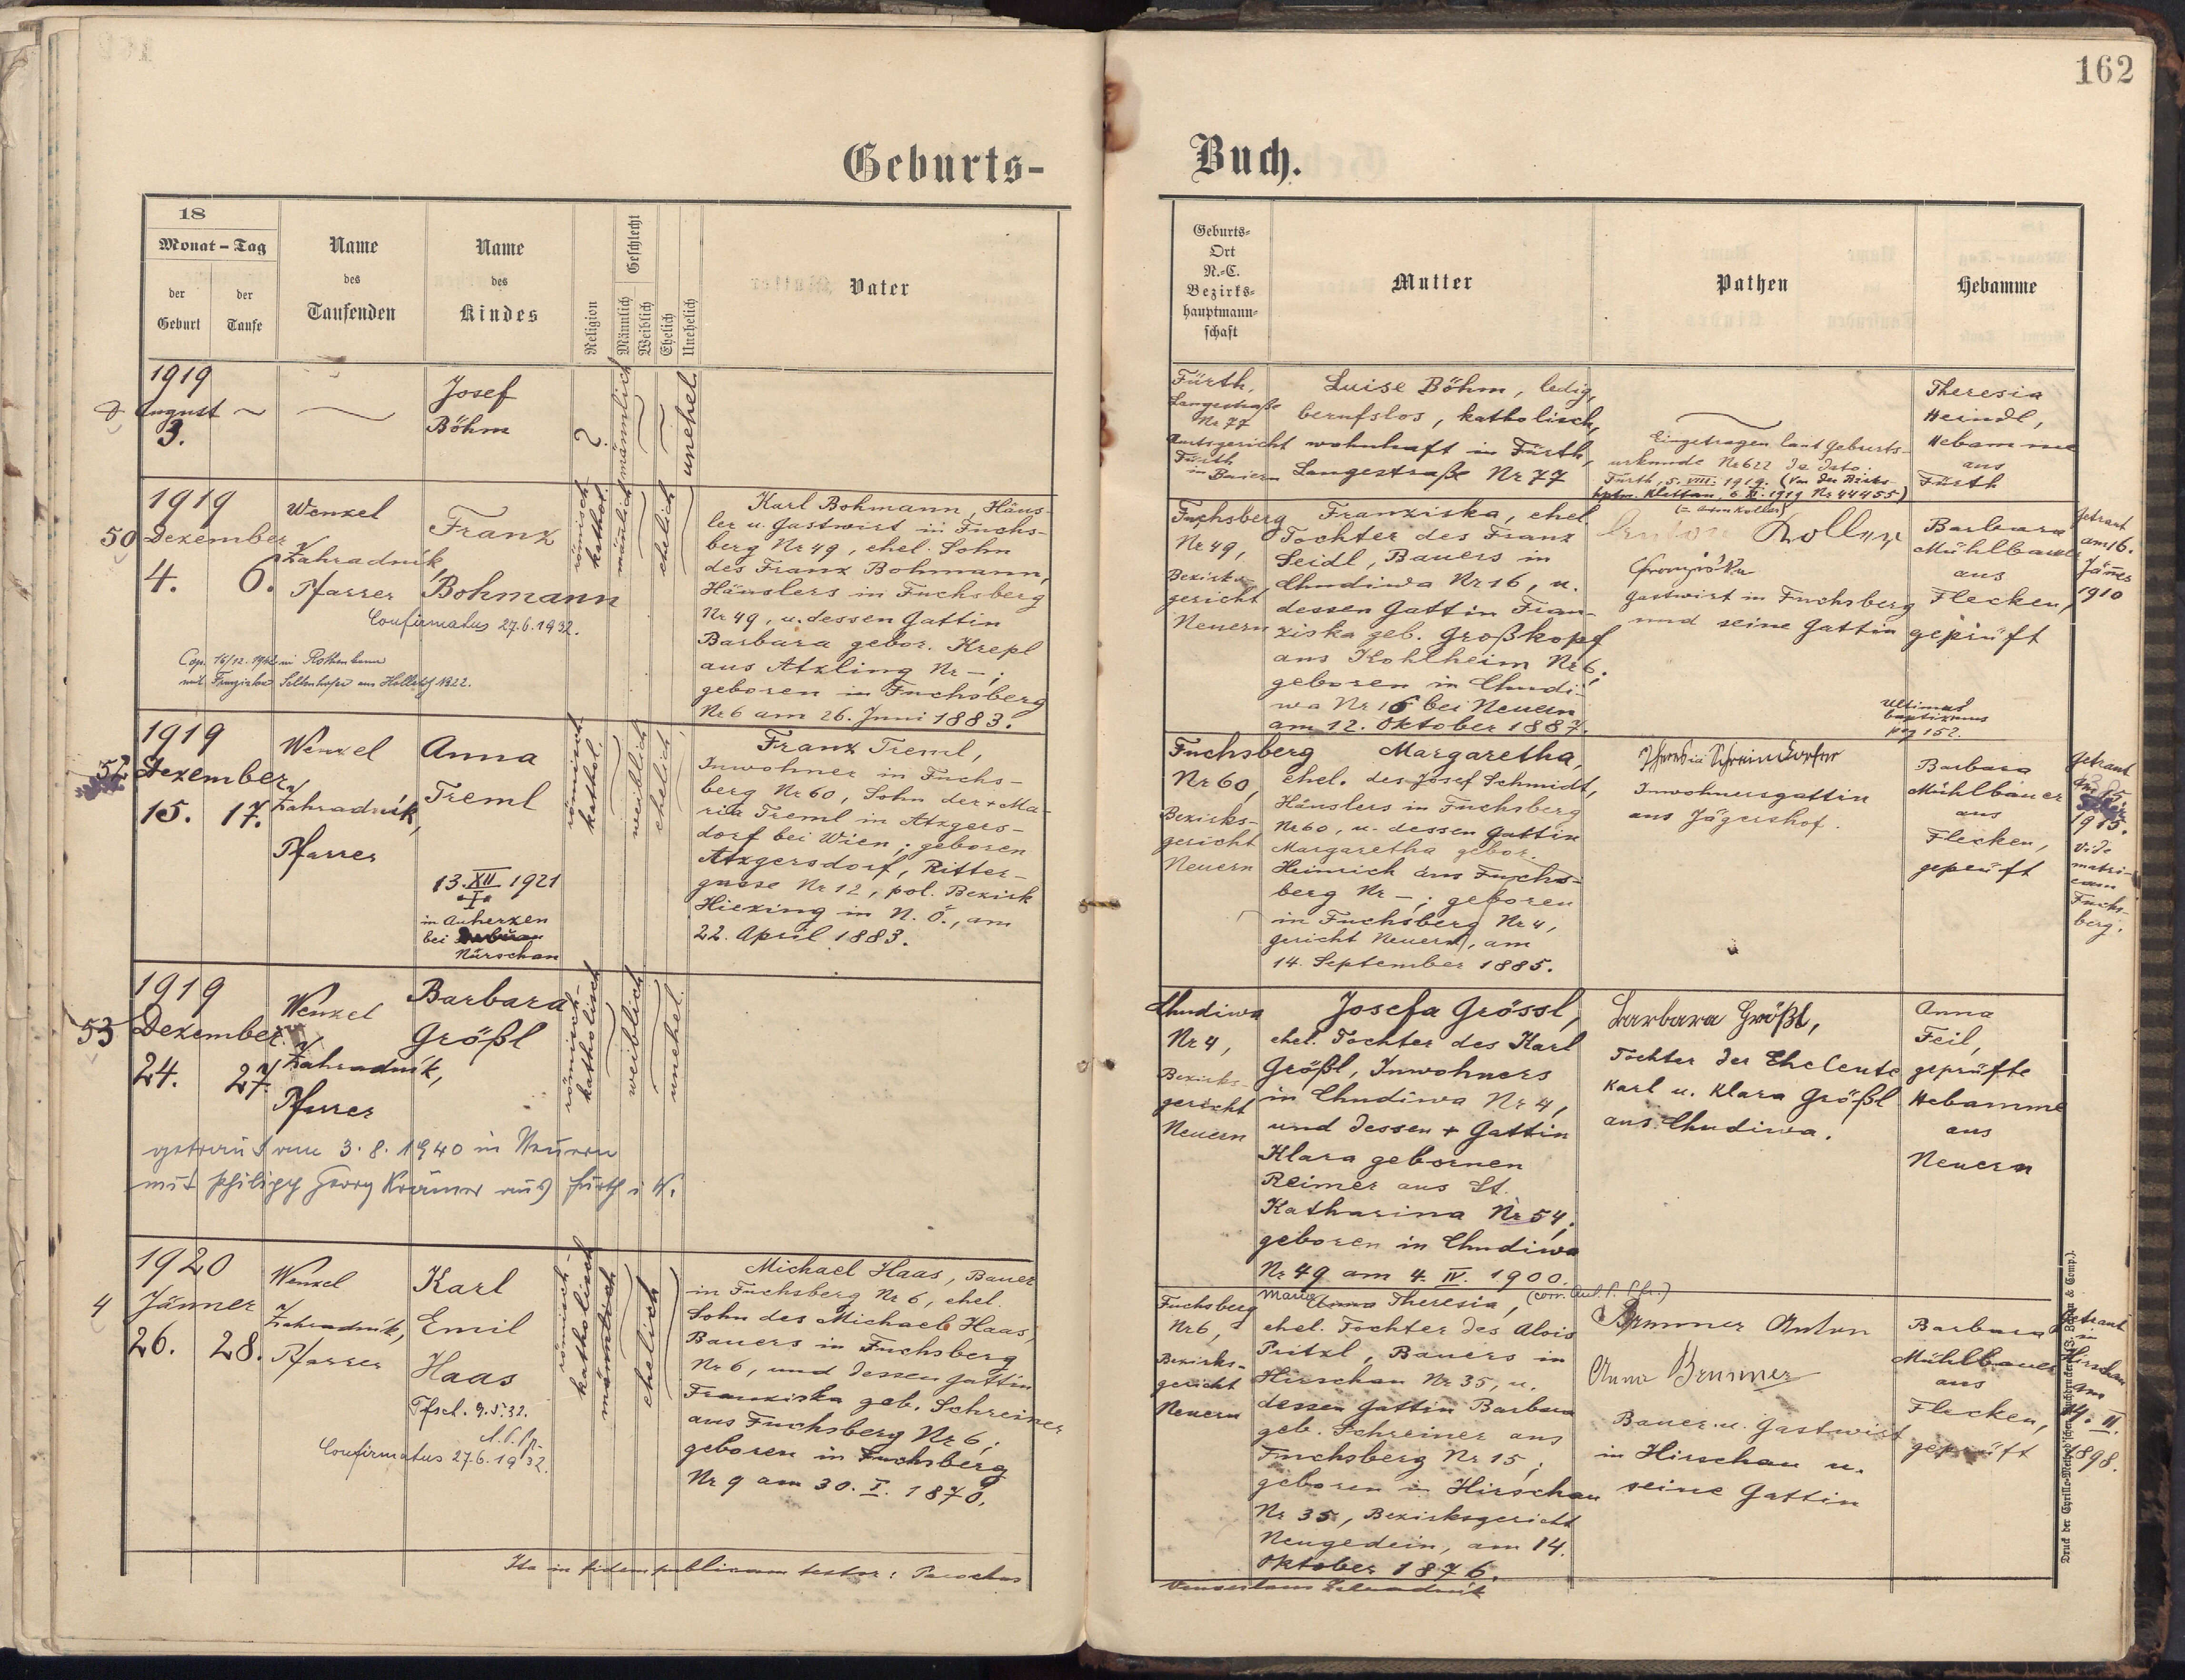 162
Geburts-
Buch.
18
Monat - Tag
der Geburt
der Taufe
Name
des
Taufenden
Name
des
Kindes
Religion
Geschlecht
Männlich
Weiblich
Ehelich
Unehelich
Vater
Geburts-
Ort
N.-C.
Bezirks-
hauptmann-
schaft
Mutter
Pathen
Hebamme
1919
August
3.
Josef
Böhm
?
männlich
unehel.
Fürth,
Langestraße
Nr 77
Amtsgericht
Fürth
in Baiern
Luise Böhm, ledig,
berufslos, katholisch,
wohnhaft in Fürth,
Langestraße Nr 77
Eingetragen laut Geburts-
urkunde Nr 622 de dato:
Fürth, 5. VIII. 1919. (Von der Bezirks-
hptm. Klattau, 6. XI. 1919 Nr 44455)
Theresia
Heindl,
Hebamme
aus
Fürth
50
1919
Dezember
4. 6.
Wenzel
Zahradník,
Pfarrer
Franz
Bohmann
Confirmatus 27.6.1932.
Cop. 16/12. 1942 in Rothenbaum
mit Franziska
römisch
kathol.
männlich
ehelich
Karl Bohmann, Häus-
ler u. Gastwirt in Fuchs-
berg Nr 49, ehel. Sohn
des Franz Bohmann,
Häuslers in Fuchsberg
Nr 49, u. dessen Gattin
Barbara gebor. Krepl
aus Atzling Nr -;
geboren in Fuchsberg
Nr 6 am 26. Juni 1883.
Fuchsberg
Nr 49,
Bezirks-
gericht
Neuern
Franziska, ehel.
Tochter des Franz
Seidl, Bauers in
Chudiwa Nr 16, u.
dessen Gattin Fran-
ziska geb. Großkopf
aus Kohlheim Nr 6;
geboren in Chudi-
wa Nr 16 bei Neuern
am 12. Oktober 1887.
Anton Koller
Franziska
Gastwirt in Fuchsberg
und seine Gattin
Barbara
Mühlbauer
aus
Flecken,
geprüft
Getraut
am 16.
Jänner
1910
Ultimus
baptizmus
pag 152.
52
1919
Dezember
15. 17.
Wenzel
Zahradník,
Pfarrer
Anna
Treml
13. XII 1921
in Auherzen
bei
Nürschan
römisch
kathol.
weiblich
ehelich
Franz Treml,
Inwohner in Fuchs-
berg Nr 60, Sohn der + Ma-
ria Treml in Atzgers-
dorf bei Wien; geboren
Atzgersdorf, Ritter-
gasse Nr 12, pol. Bezirk
Hiezing in N. Ö., am
22. April 1883.
Fuchsberg
Nr 60,
Bezirks-
gericht
Neuern
Margaretha,
ehel. des Josef Schmidt,
Häuslers in Fuchsberg
Nr 60, u. dessen Gattin
Margaretha gebor.
Heinrich aus Fuchs-
berg Nr -; geboren
in Fuchsberg Nr 4,
gericht Neuern, am
14. September 1885.
Inwohnersgattin
aus Jägershof.
Barbara
Mühlbauer
aus
Flecken,
geprüft
Getraut
1915.
Vide
matri-
cam
Fuchs-
berg.
53
1919
Dezember
24. 27.
Wenzel
Zahradník,
Pfarrer
Barbara
Größl
getraut am 3.8.1940 in Neuern
mit Philipp Georg Krämer aus Fürth i. W.
römisch-
katholisch
weiblich
unehel.
Chudiwa
Nr 4,
Bezirks-
gericht
Neuern
Josefa Grössl,
ehel. Tochter des Karl
Größl, Inwohners
in Chudiwa Nr 4,
und dessen + Gattin
Klara gebornen
Reimer aus St.
Katharina Nr 54;
geboren in Chudiwa
Nr 49 am 4. IV. 1900.
Barbara Größl,
Tochter der Eheleute
Karl u. Klara Größl
aus Chudiwa.
Anna
Feil,
geprüfte
Hebamme
aus
Neuern
4
1920
Jänner
26. 28.
Wenzel
Zahradník,
Pfarrer
Karl
Emil
Haas
Tfsch. 9.5.32.
Confirmatus 27.6.1932.
römisch-
katholisch
männlich
ehelich
Michael Haas, Bauer
in Fuchsberg Nr 6, ehel.
Sohn des Michael Haas,
Bauers in Fuchsberg
Nr 6, und dessen Gattin
Franziska geb. Schreiner
aus Fuchsberg Nr 6;
geboren in Fuchsberg
Nr 9 am 30. I. 1870.
Fuchsberg
Nr 6,
Bezirks-
gericht
Neuern
Maria Anna Theresia,
ehel. Tochter des Alois
Pritzl, Bauers in
Hirschau Nr 35, u.
dessen Gattin Barbara
geb. Schreiner aus
Fuchsberg Nr 15;
geboren in Hirschau
Nr 35, Bezirksgericht
Neugedein, am 14.
Oktober 1876.
Brunner Anton
Anna Brunner
Bauer u. Gastwirt
in Hirschau u.
seine Gattin
Barbara
Mühlbauer
aus
Flecken,
geprüft
Getraut
in
Hirschau
am
14. II.
1898.
Ita in fidem publicam testor: Parochus
Venceslaus Zahradník
Druck der Cyrillo-Method'schen Buchdruckerei